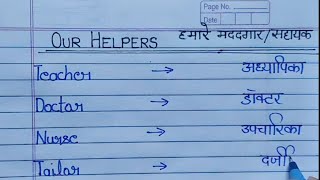 Page No.
Date
Our Helpers हमारे मददगार/सहायक
Teacher → अध्यापिका
Doctar → डॉक्टर
Nurse → उपचारिका
Tailar → दर्जी